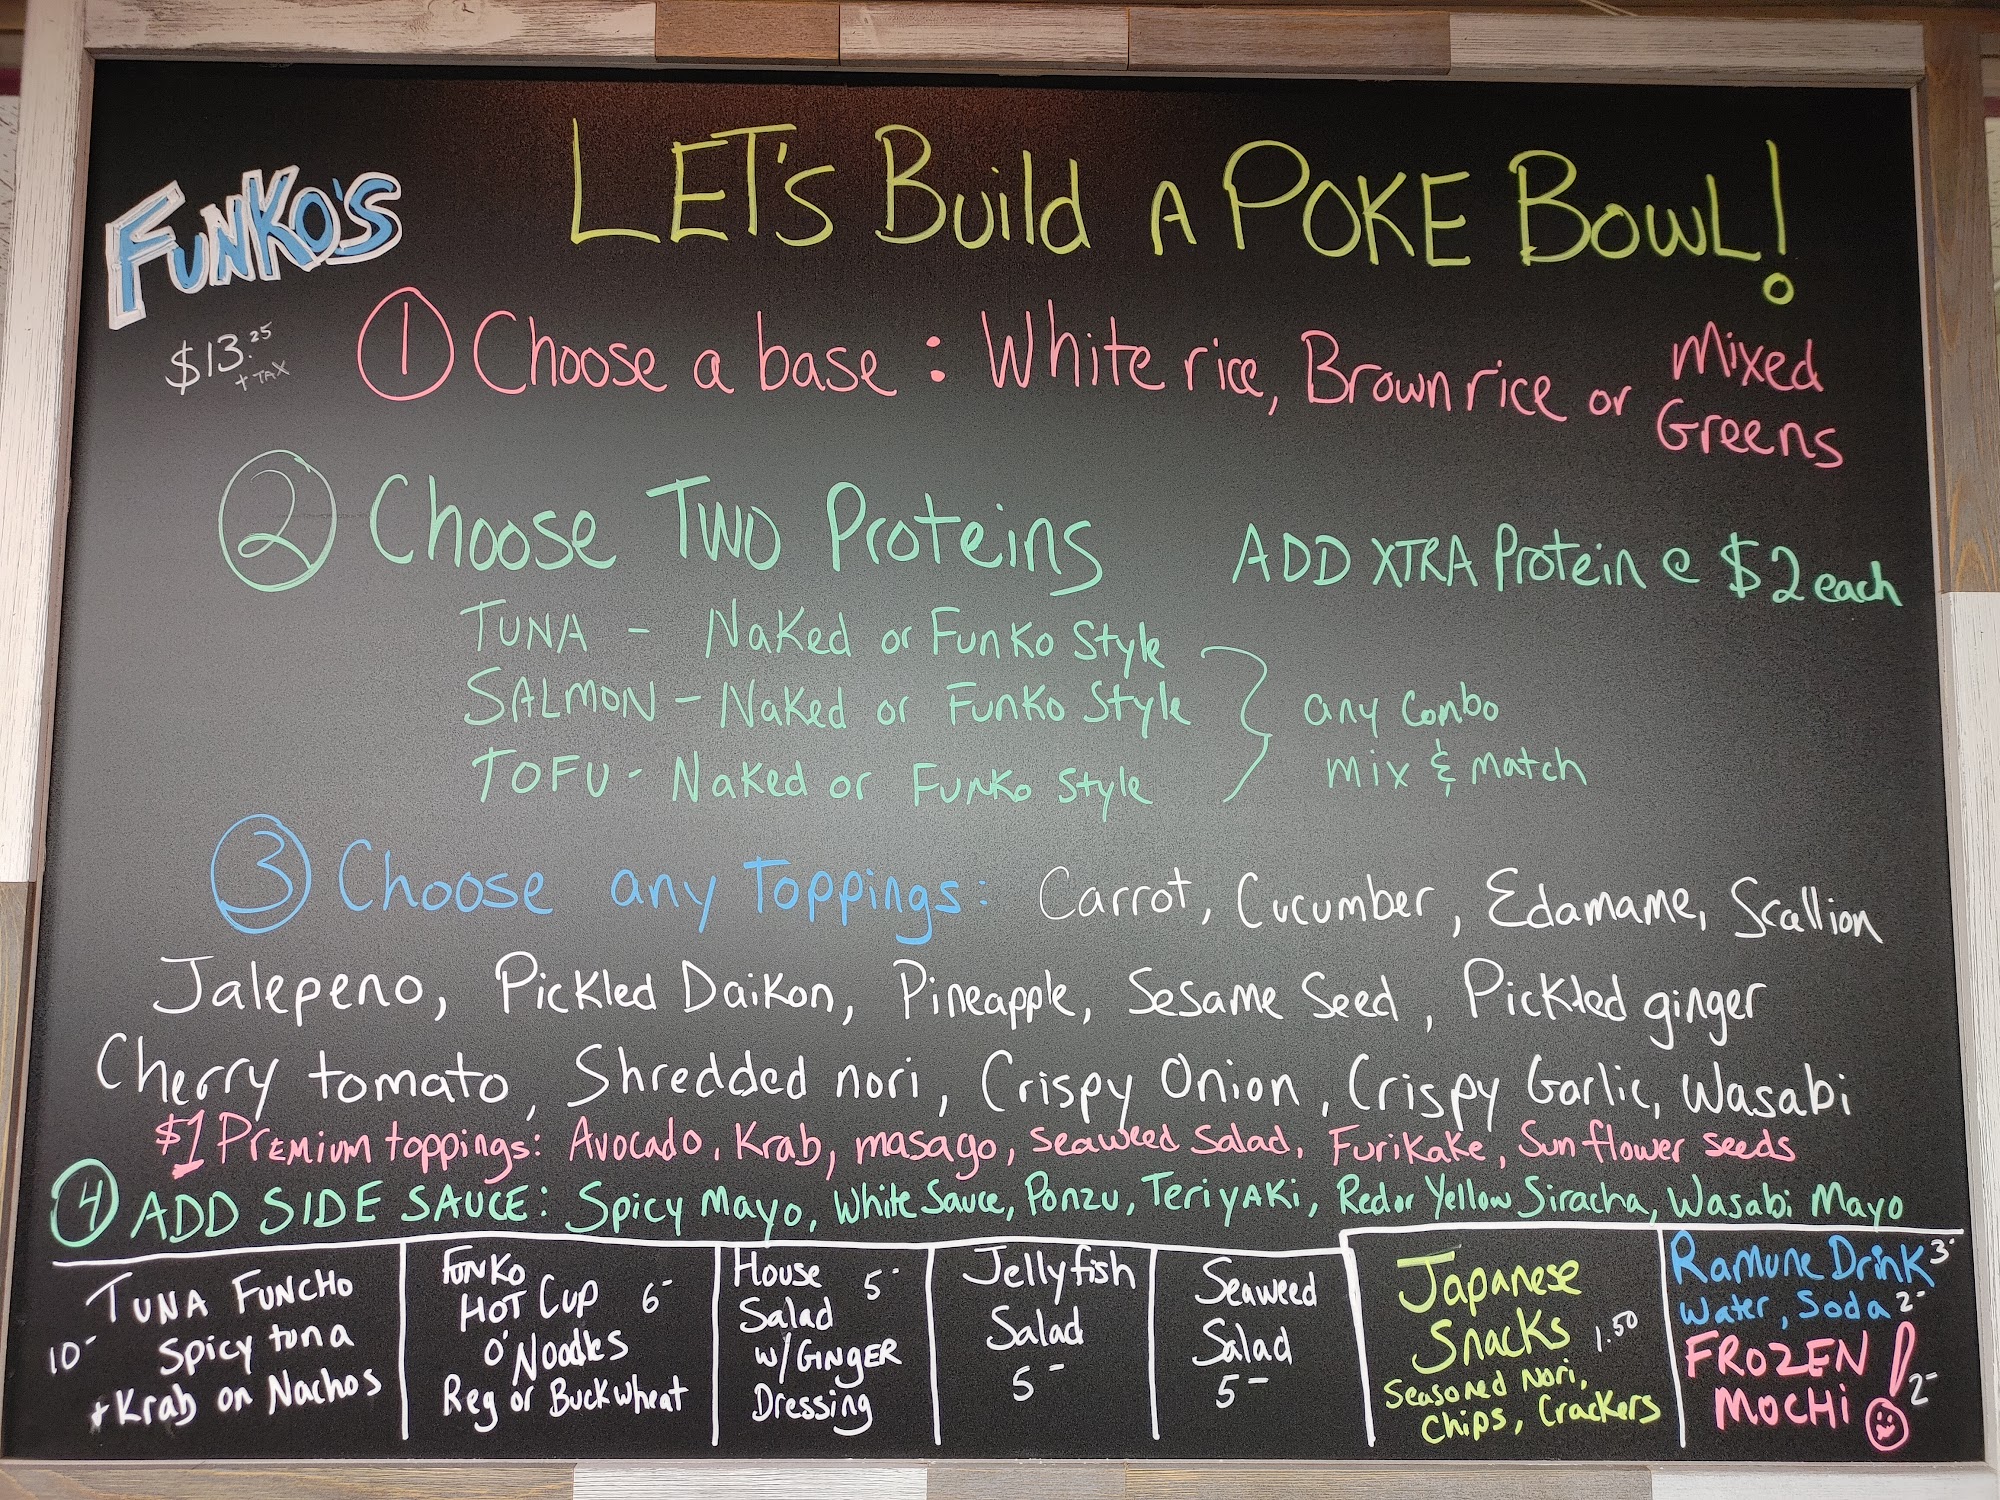 FUNKO'S
LET'S Build A POKE BOWL!
$13.25
+ TAX
① Choose a base : White rice, Brown rice or Mixed Greens
② Choose TWO Proteins
ADD XTRA Protein @ $2 each
TUNA - Naked or Funko Style
SALMON - Naked or Funko Style
TOFU - Naked or Funko Style
any Combo
mix & match
③ Choose any Toppings: Carrot, Cucumber, Edamame, Scallion
Jalepeno, Pickled Daikon, Pineapple, Sesame Seed, Pickled ginger
Cherry tomato, Shredded nori, Crispy Onion, Crispy Garlic, Wasabi
$1 Premium toppings: Avocado, Krab, masago, seaweed salad, Furikake, Sunflower seeds
④ ADD SIDE SAUCE: Spicy Mayo, White Sauce, Ponzu, Teriyaki, Red or Yellow Siracha, Wasabi Mayo
TUNA FUNCHO
10- Spicy tuna
+ Krab on Nachos
FUNKO
HOT CUP 6-
O'Noodles
Reg or Buckwheat
House 5-
Salad
w/ GINGER
Dressing
Jellyfish
Salad
5-
Seaweed
Salad
5-
Japanese
Snacks 1.50
Seasoned Nori,
Chips, Crackers
Ramune Drink 3-
Water, Soda 2-
FROZEN
MOCHI ! 2-